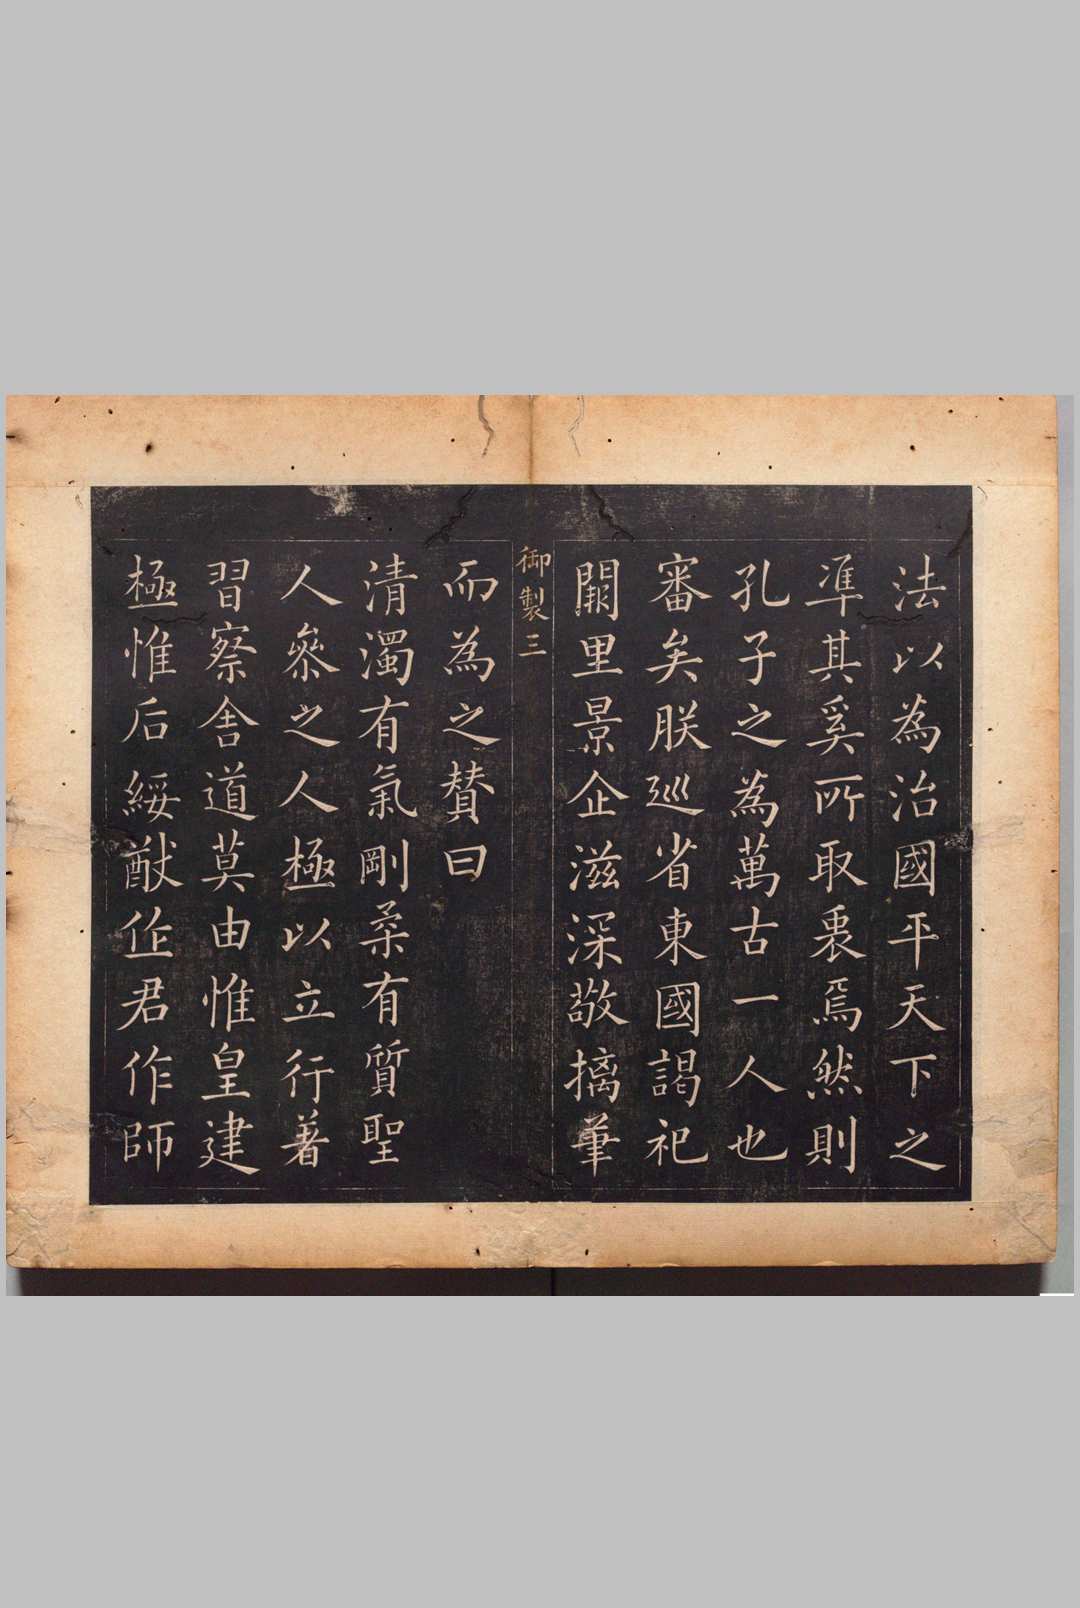 法以為治國平天下之
準其奚所取衷焉然則
孔子之為萬古一人也
審矣朕巡省東國謁祀
闕里景企滋深敬摛筆
御製三
而為之贊曰
清濁有氣剛柔有質聖
人參之人極以立行著
習察舍道莫由惟皇建
極惟后綏猷作君作師